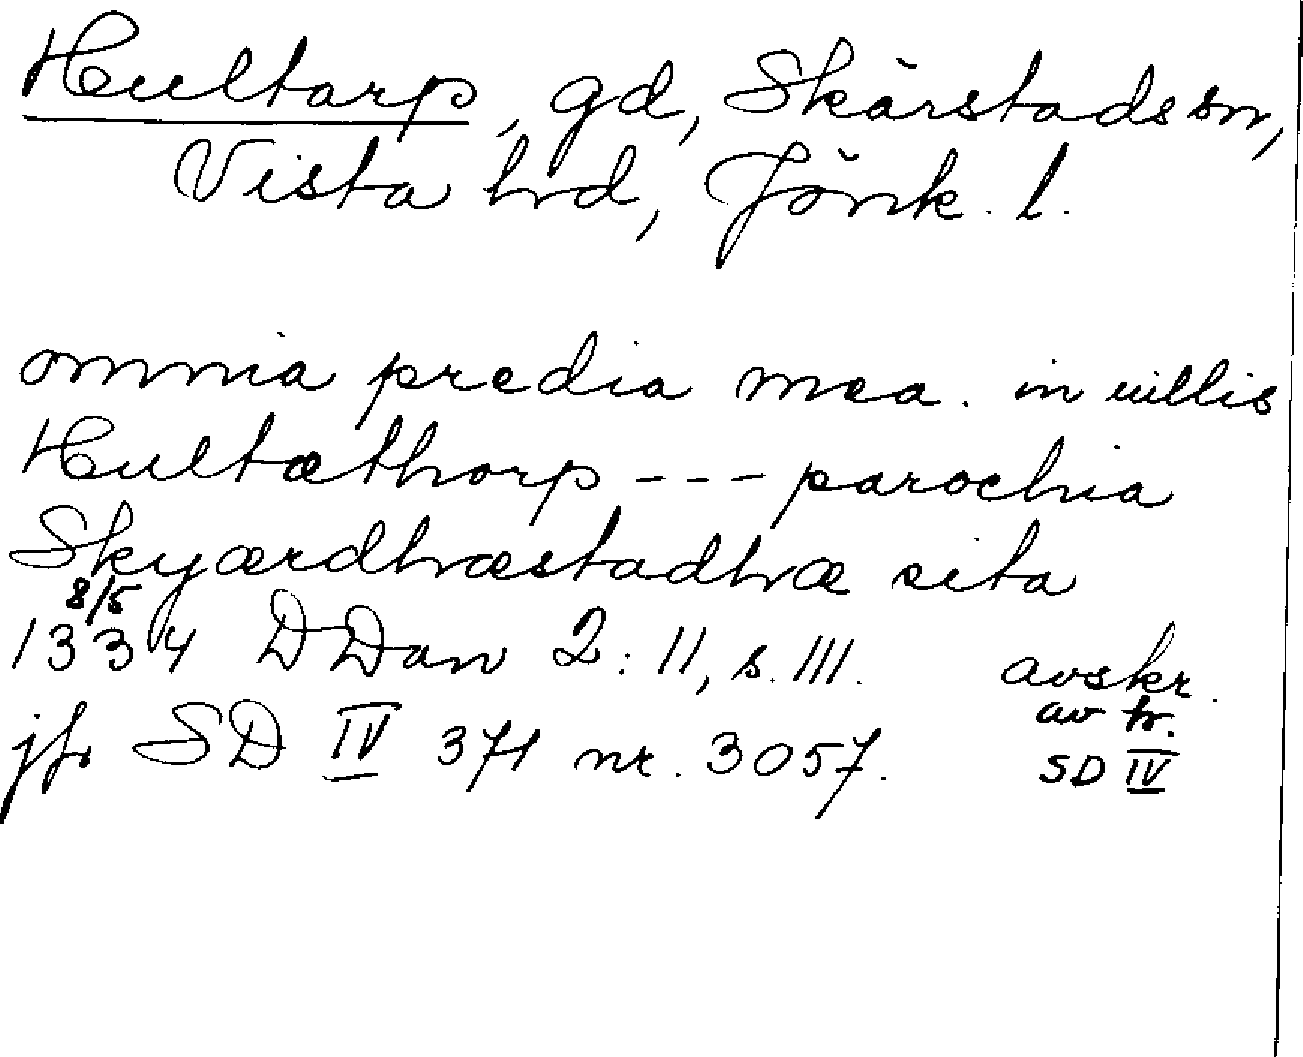 Hultarp, gd, Skärstads sn,
Vista hrd, Jönk. l.
omnia predia mea. in uillis
Hultæthorp --- parochia
Skyærdhæstadhæ sita
8/5
1334 DDan 2:11, s. 111. avskr.
av tr.
jfr SD IV 371 nr. 3057. SD IV